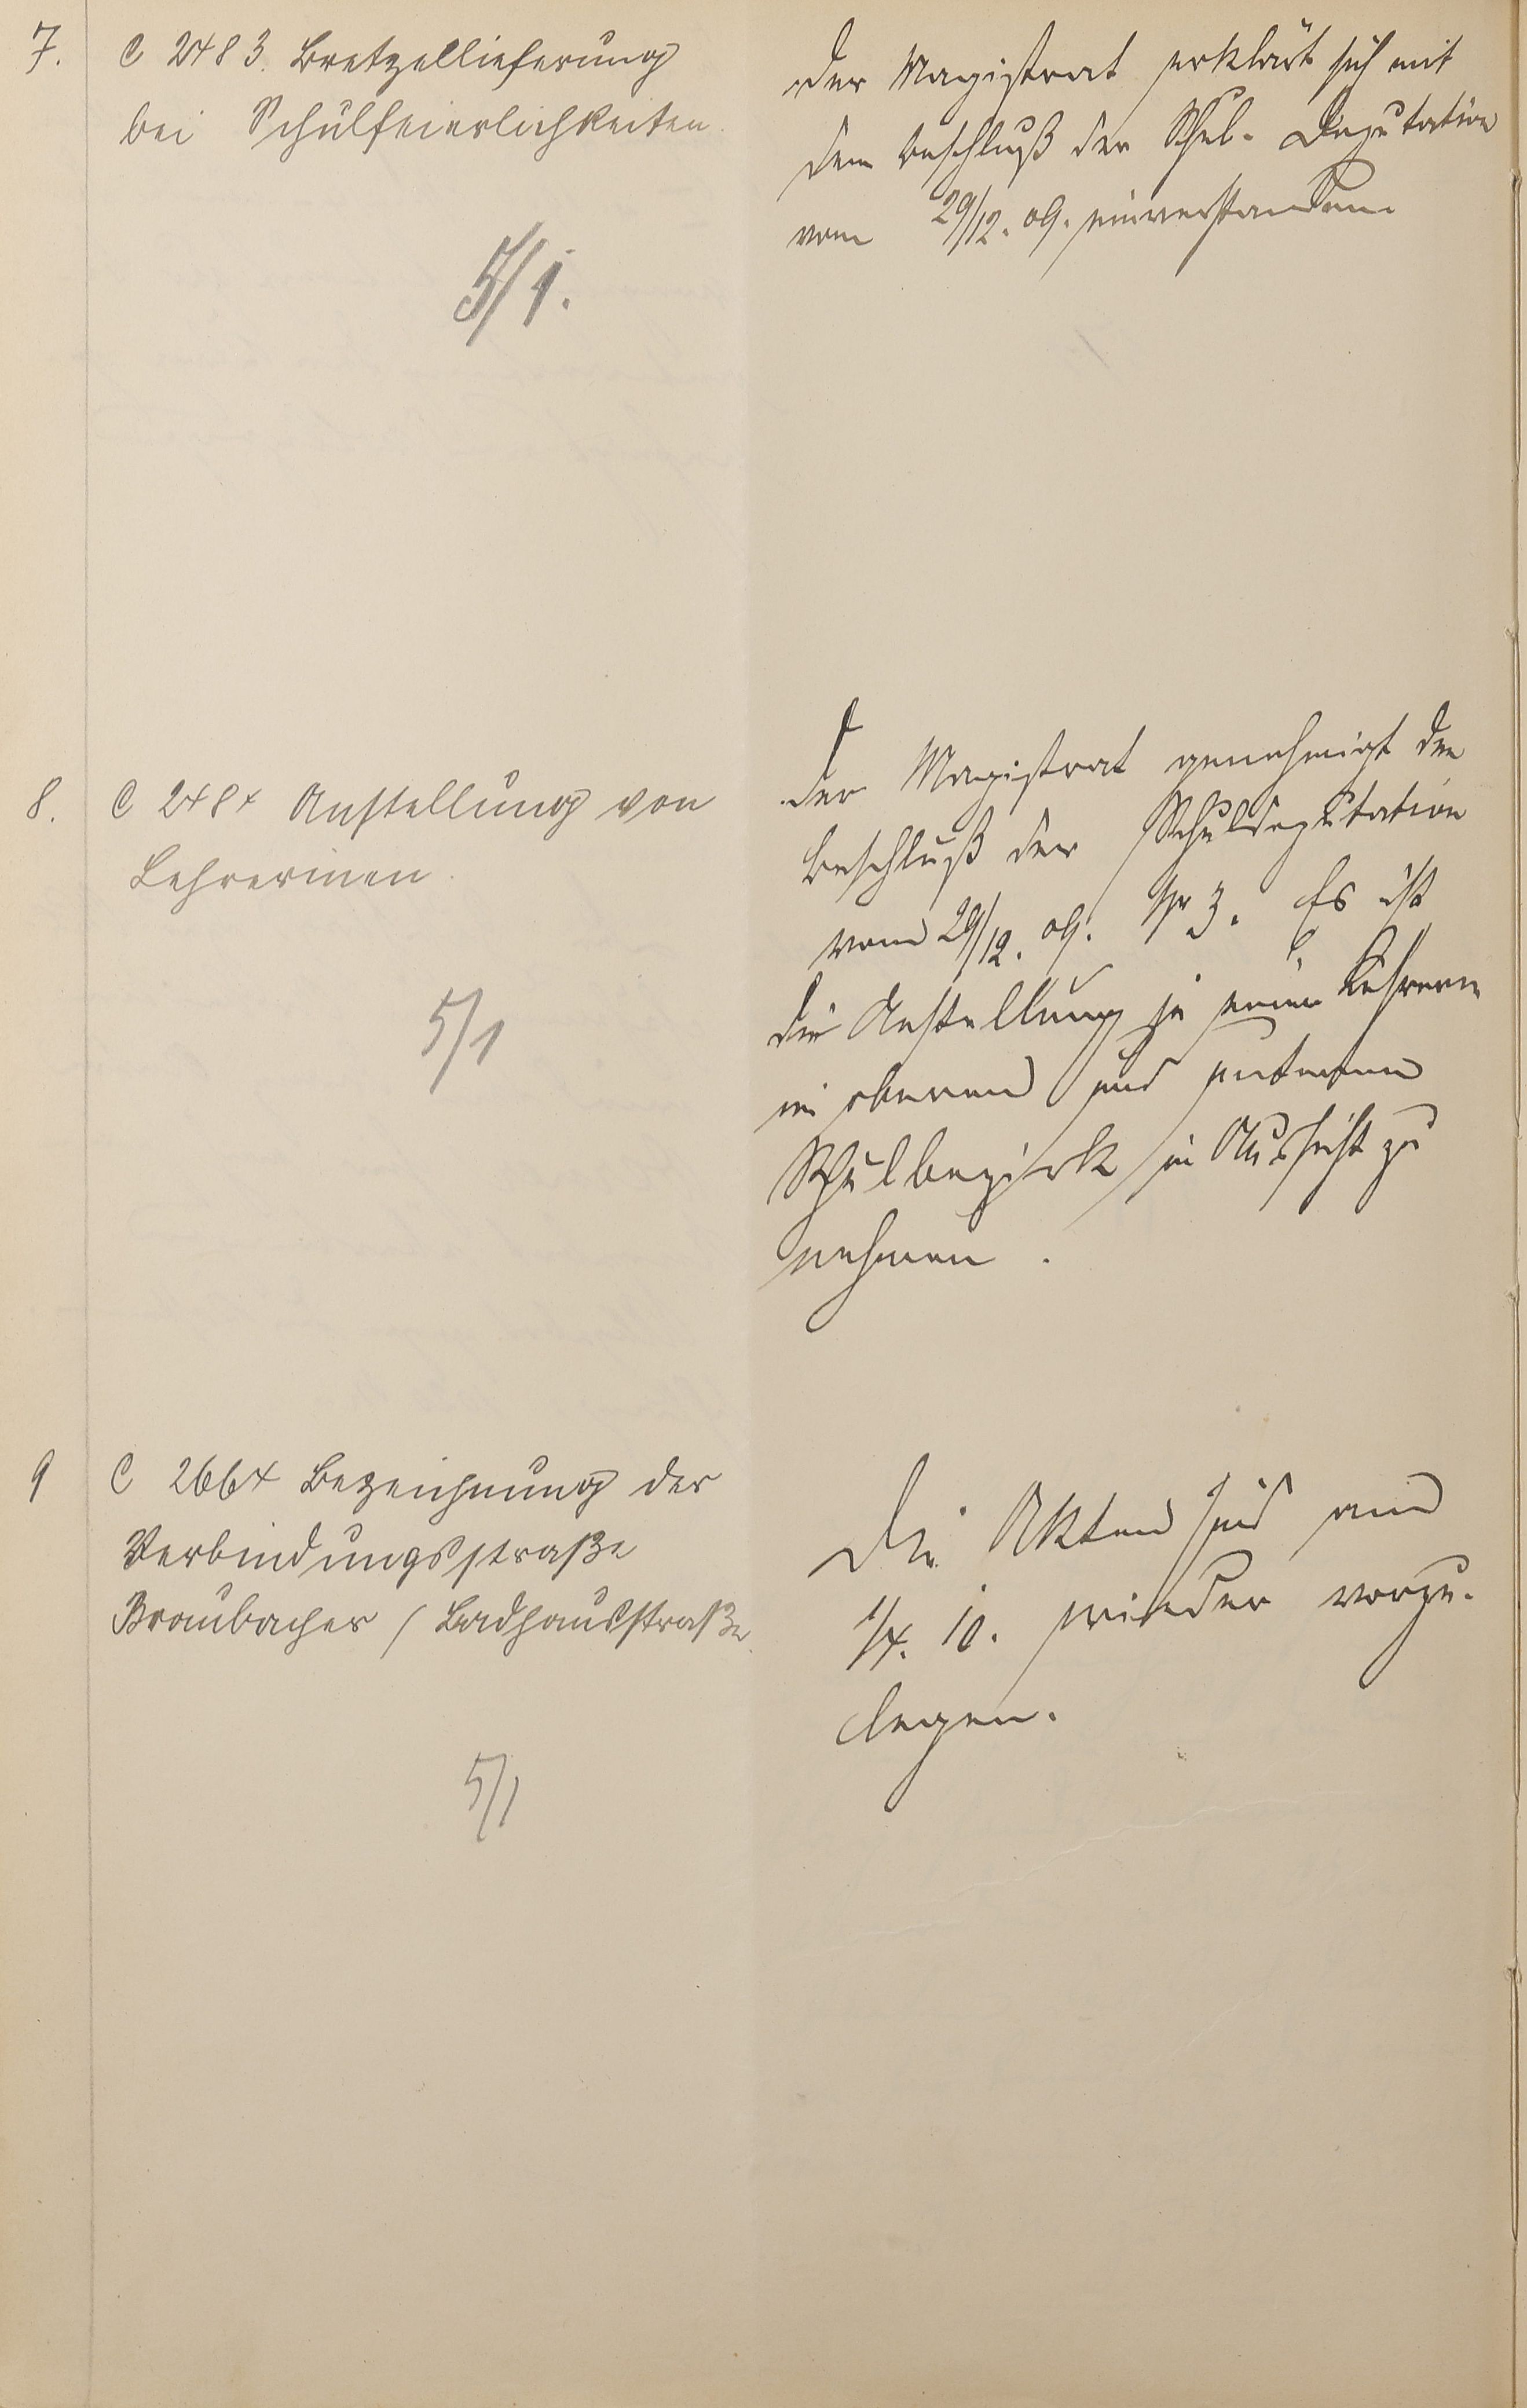 7.
C 2483. Bretzellieferung
bei Schulfeierlichkeiten.
5/1.
Der Magistrat erklärt sich mit
dem Beschluß der Schul-Deputation
vom 29/12. 09. einverstanden
8.
C 2484 Anstellung von
Lehrerinen.
5/1
Der Magistrat genehmigt den
Beschluß der Schuldeputation
vom 29/12. 09. Nr 3. Es ist
die Anstellung je einer Lehrerin
im oberen und unteren
Schulbezirk in Aussicht zu
nehmen.
9
C 2664 Bezeichnung der
Verbindungsstraße
Braubacher / Badhausstraße.
5/1
Die Akten sind am
1/4. 10. wieder vorzu-
legen.